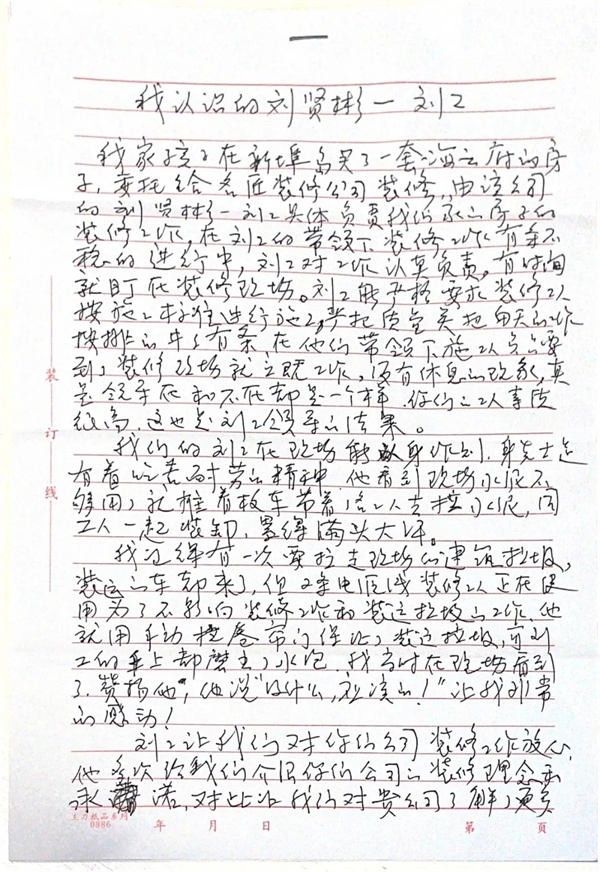 我认识的刘贤彬一刘工
我家孩子在新埠岛买了一套海云府的房
子,委托给名匠装修公司装修,由该公司
的刘贤彬一刘工具体负责我们家的房子的
装修工作,在刘工的带领下装修工作有条不
稳的进行中,刘工对工作认车负责,有时间
就盯在装修现场。刘工能严格要求装修工人
按施工标准进行施工,严把质量关把每天的工作
按排的井井有条在他们带领下施工人员只要
到了装修现场就立既工作,没有休息的现象,真
是领导在和不在却是一个样,你们的工人素质
很高,这也是刘工领导的结果。
我们的刘工在现场能以身作则,身先士卒
有着吃苦耐劳的精神,他看到现场水泥不
够用了就推着板车带着工人去拉水泥,同
工人一起装卸,累得满头大汗。
我记得有一次要拉走现场的建筑垃圾,
装运的车却来了,但2条电源线装修工人正在使
用为了不影响装修工作和装运垃圾的工作,他
就用手动拉卷帘门保证了装运垃圾,可刘
工的手上却磨出了水泡,我当时在现场看到
了,赞扬他",他说"没什么,应该的!"让我非常
的感动!
刘工让我们对你们公司装修工作放心,
他多次给我们介绍你们公司的装修理念和
承诺,对比让我们对贵公司了解了更多
装订线
主力纸品系列
0886
年 月 日
第 页